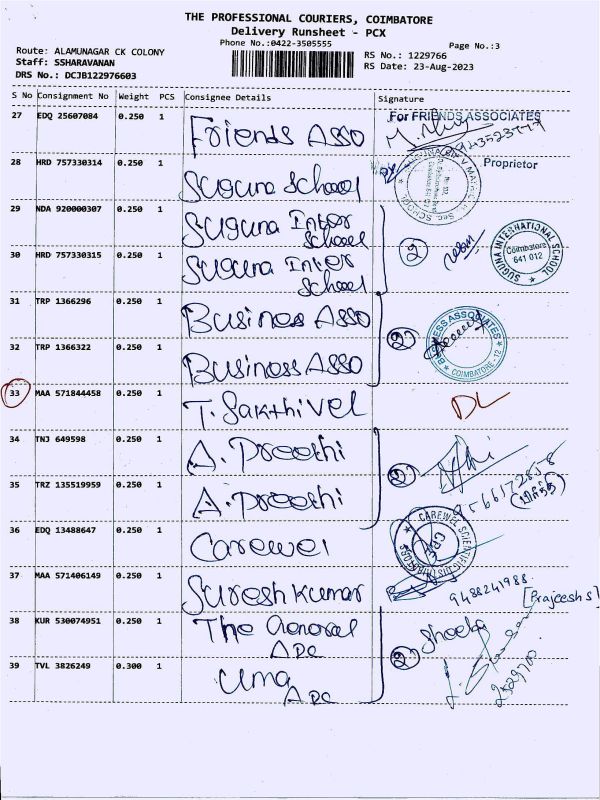 THE PROFESSIONAL COURIERS, COIMBATORE
Delivery Runsheet - PCX
Phone No.:0422-3505555
Page No.:3
Route: ALAMUNAGAR CK COLONY
Staff: SSHARAVANAN
DRS No.: DCJB122976603
RS No.: 1229766
RS Date: 23-Aug-2023
S No Consignment No Weight PCS Consignee Details Signature
27 EDQ 25607084 0.250 1 Friends Asso For FRIENDS ASSOCIATES
Proprietor
28 HRD 757330314 0.250 1 Suguna School
29 NDA 920000307 0.250 1 Suguna Inter School
30 HRD 757330315 0.250 1 Suguna Inter School
2
SUGUNA INTERNATIONAL SCHOOL
Coimbatore
641 012
31 TRP 1366296 0.250 1 Business Asso
32 TRP 1366322 0.250 1 Business Asso
2
BUSINESS ASSOCIATES
COIMBATORE - 12
33 MAA 571844458 0.250 1 T. Sakthivel DL
34 TNJ 649598 0.250 1 A. Preethi
35 TRZ 135519959 0.250 1 A. Preethi
2
36 EDQ 13488647 0.250 1 Carewel
37 MAA 571406149 0.250 1 Suresh Kumar
9488241988
[Prajeesh S]
38 KUR 530074951 0.250 1 The General
39 TVL 3826249 0.300 1 Uma
2
Sheeba